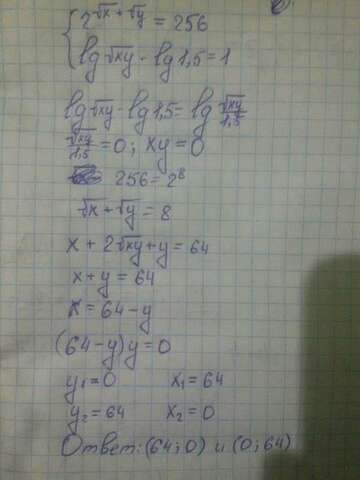 { 2^(√x + √y) = 256
lg √xy - lg 1,5 = 1
lg √xy - lg 1,5 = lg √xy/1,5
√xy/1,5 = 0; xy = 0
256 = 2^8
√x + √y = 8
x + 2√xy + y = 64
x + y = 64
x = 64 - y
(64 - y) y = 0
y₁ = 0 x₁ = 64
y₂ = 64 x₂ = 0
Ответ: (64; 0) и (0; 64)